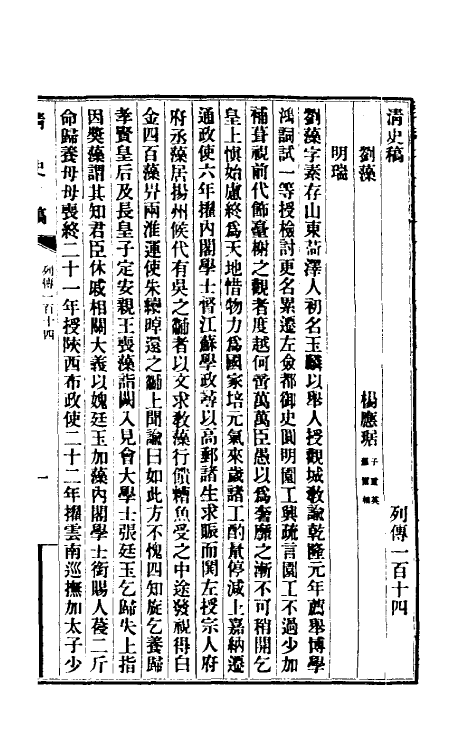 清史稿　列傳一百十四
劉藻　楊應琚子重英 蘇爾相
明瑞
劉藻字素存山東菏澤人初名玉麟以舉人授觀城敎諭乾隆元年薦舉博學
鴻詞試一等授檢討更名累遷左僉都御史圓明園工興疏言園工不過少加
補葺視前代飾臺榭之觀者度越何啻萬萬臣愚以爲奢靡之漸不可稍開乞
皇上愼始慮終爲天地惜物力爲國家培元氣來歲諸工酌量停減上嘉納遷
通政使六年擢內閣學士督江蘇學政尋以高郵諸生求賑而鬨左授宗人府
府丞藻居揚州候代有吳之黼者以文求敎藻行餽糟魚受之中途發視得白
金四百藻畀兩淮運使朱續晫還之黼上聞諭曰如此方不愧四知旋乞養歸
孝賢皇后及長皇子定安親王喪藻詣闕入見會大學士張廷玉乞歸失上指
因獎藻謂其知君臣休戚相關大義以媿廷玉加藻內閣學士銜賜人葠二斤
命歸養母母喪終二十一年授陝西布政使二十二年擢雲南巡撫加太子少
清史稿　列傳一百十四　一